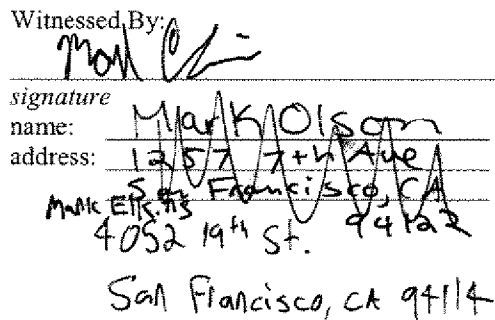 Witnessed By:
signature
name: Mark Olson
address: 1257 7th Ave
San Francisco, CA
94122
Mark
4052 19th St.
San Francisco, CA 94114